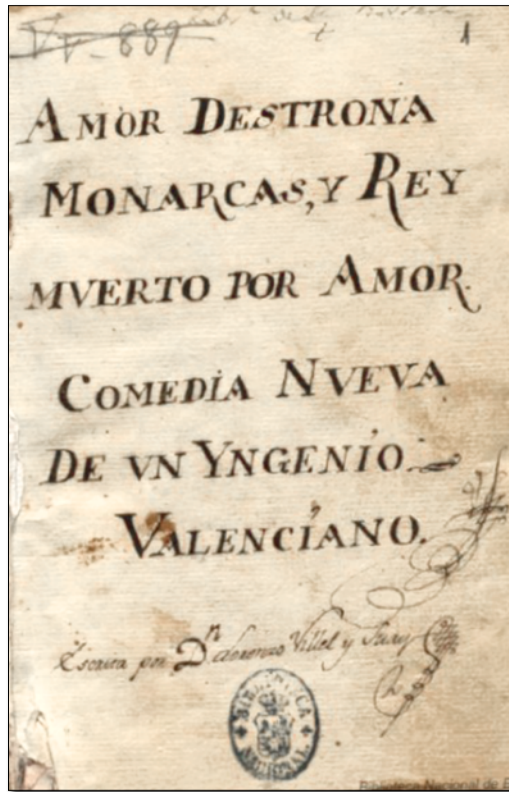 Vv-889
1
AMOR DESTRONA
MONARCAS, Y REY
MVERTO POR AMOR.
COMEDIA NVEVA
DE VN YNGENIO
VALENCIANO.
Escrita por Dn Lorenzo Villel y
BIBLIOTECA
NACIONAL
Biblioteca Nacional de E